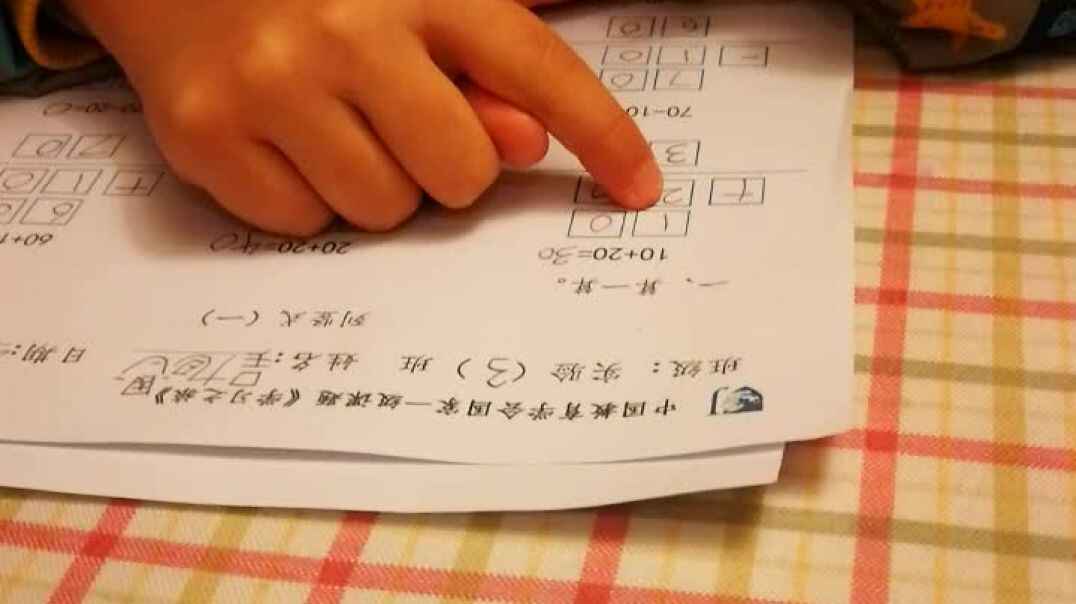 中国教育学会国家一级课题《学习之
班级：实验（3）班 姓名：王 日期：
列竖式（一）
一、算一算。
10+20=30 20+20=40 60+1
1 0 6 0
+ 2 + 1 0
3 7 0
70-10
7 0
- 1 0
6 0